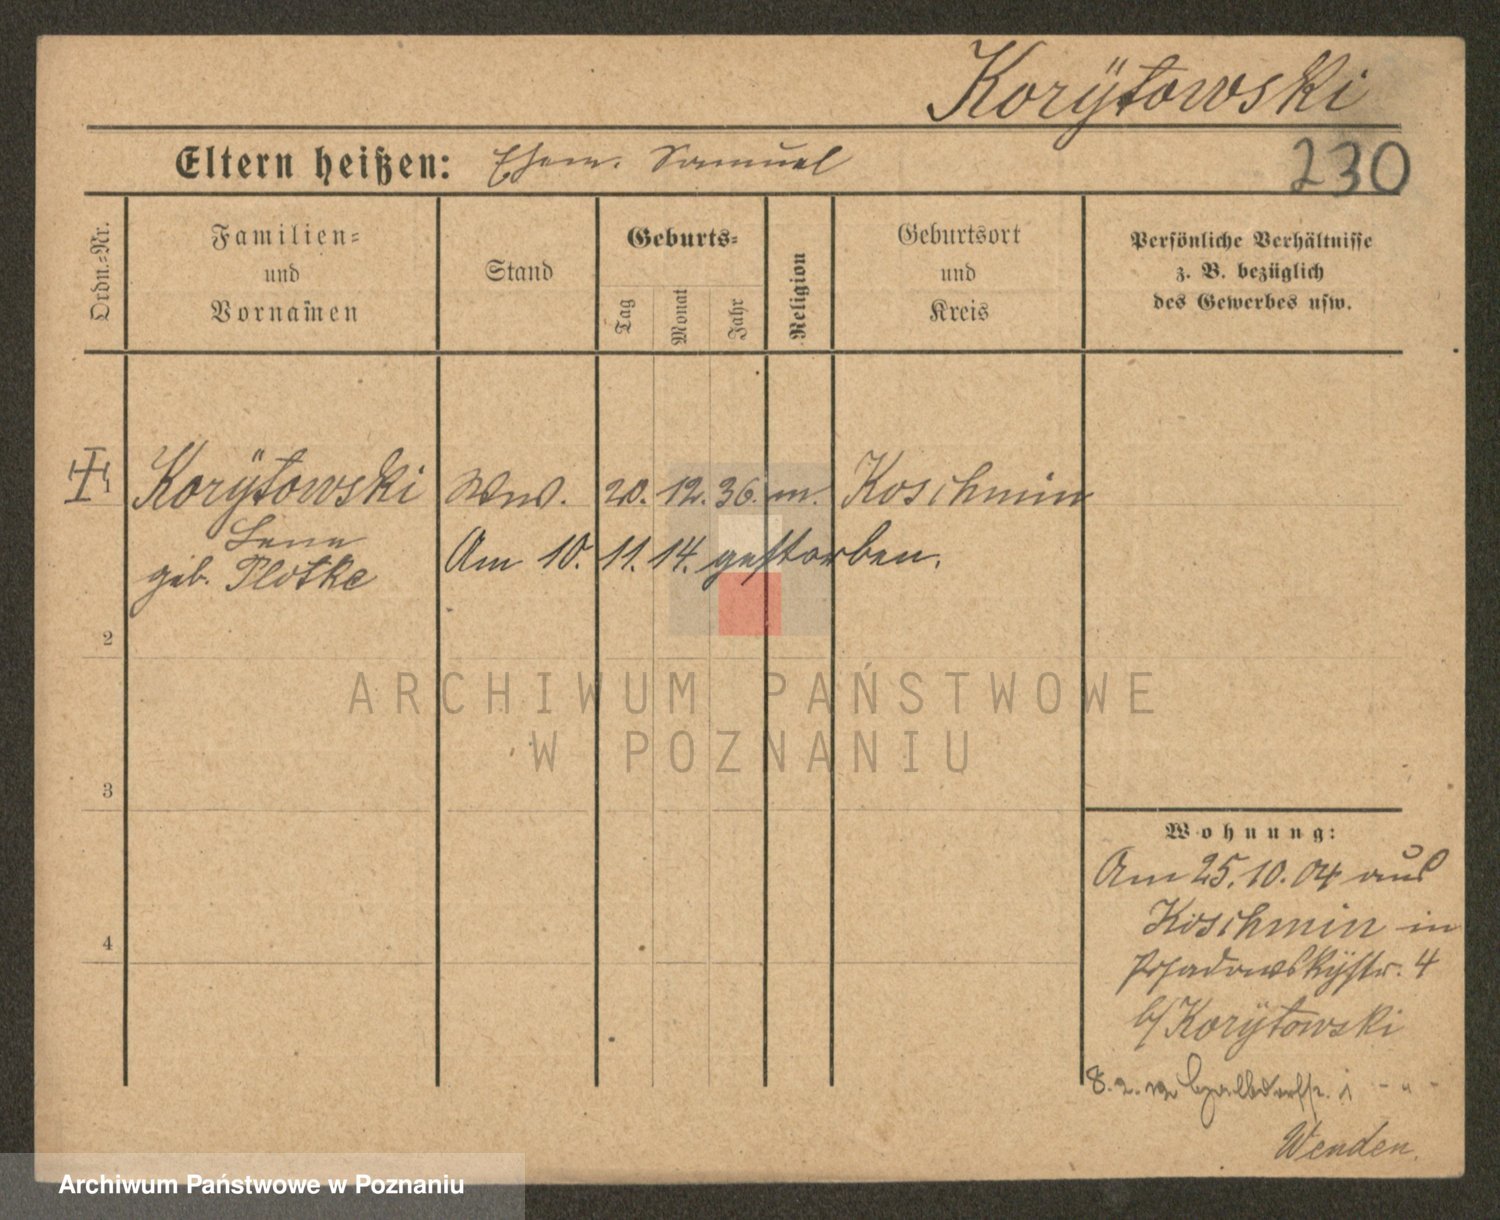 Korÿtowski
Eltern heißen: Ehem. Samuel
230
Ordn.=Nr.
Familien=
und
Vornamen
Stand
Geburts=
Tag
Monat
Jahr
Religion
Geburtsort
und
Kreis
Persönliche Verhältnisse
z. B. bezüglich
des Gewerbes usw.
Korÿtowski Ww. 20. 12. 36. m. Koschmin
geb. Plotke
Am 10. 11. 14. gestorben.
2
3
4
Wohnung:
Am 25. 10. 04 aus
Koschmin in
Posadowskÿstr. 4
b/ Korÿtowski
8. 2.
Wenden.
ARCHIWUM PAŃSTWOWE
W POZNANIU
Archiwum Państwowe w Poznaniu